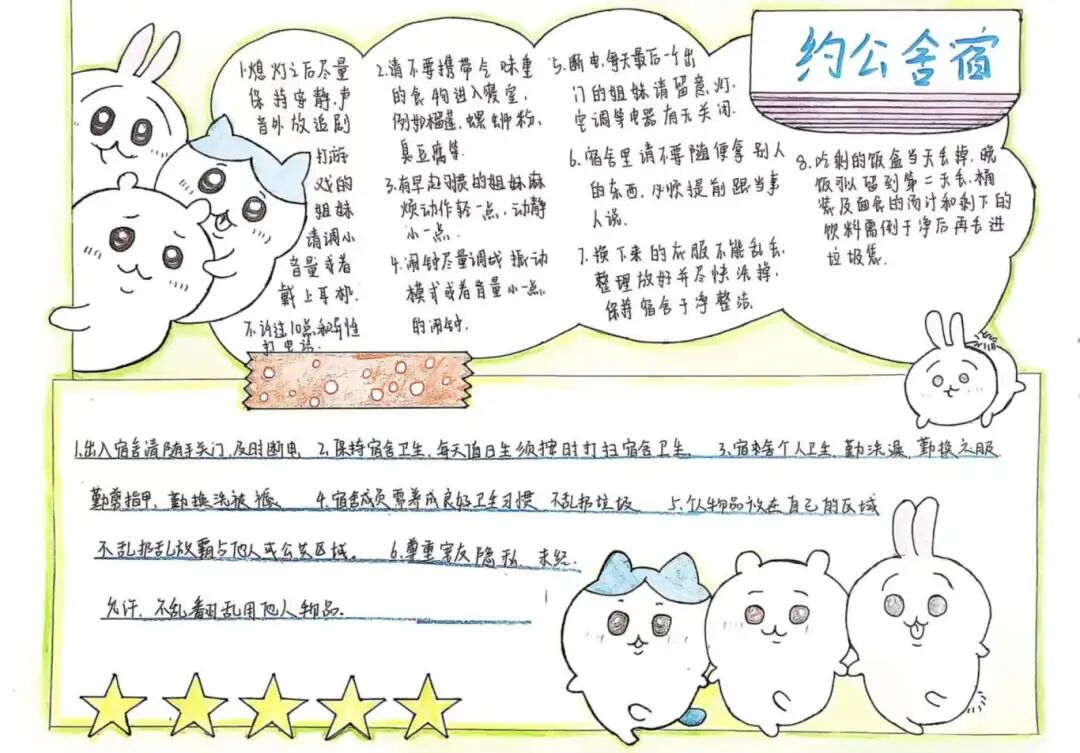 约公舍宿
1.熄灯之后尽量
保持安静.声
音外放追剧
打游
戏的
姐妹
请调小
音量或者
戴上耳机.
不许过10点和异性
打电话.
2.请不要携带气味重
的食物进入寝室,
例如榴莲、螺蛳粉、
臭豆腐等.
3.有早起习惯的姐妹麻
烦动作轻一点,动静
小一点.
4.闹钟尽量调成振动
模式或者音量小一点
的闹钟.
5.断电,每天最后一个出
门的姐妹请留意灯.
空调等电器有无关闭.
6.宿舍里请不要随便拿别人
的东西,必须提前跟当事
人说.
7.换下来的衣服不能乱丢,
整理放好并尽快洗掉,
保持宿舍干净整洁.
8.吃剩的饭盒当天丢掉,晚
饭可以留到第二天丢.桶
装及面食的汤汁和剩下的
饮料需倒干净后再丢进
垃圾袋.
1.出入宿舍请随手关门,及时断电 2.保持宿舍卫生,每天值日生须按时打扫宿舍卫生. 3.宿舍个人卫生,勤洗澡,勤换衣服
勤剪指甲,勤换洗被褥. 4.宿舍成员需养成良好卫生习惯 不乱扔垃圾. 5.个人物品放在自己的区域
不乱扔乱放霸占他人或公共区域。 6.尊重室友隐私 未经.
允许,不乱翻乱用他人物品.